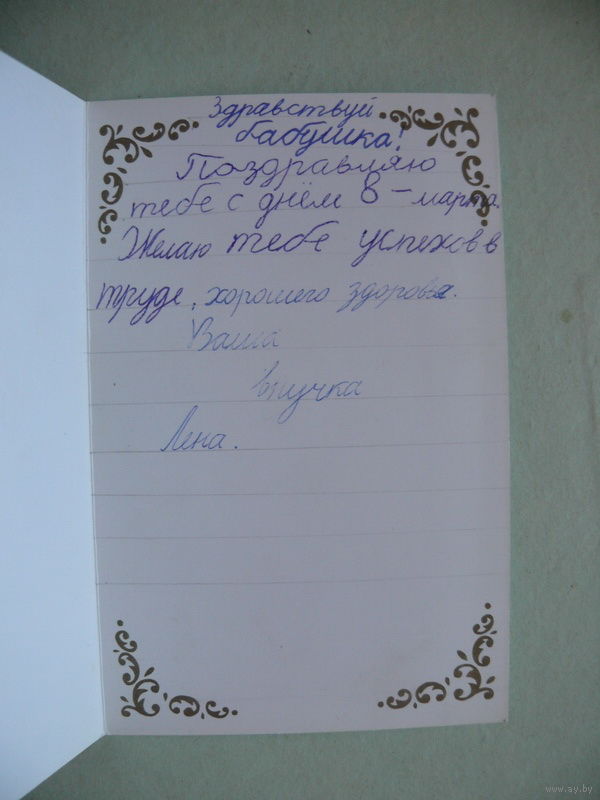 Здравствуй
бабушка!
Поздравляю
тебе с днём 8 – марта.
Желаю тебе успехов в
труде, хорошего здоровья.
Ваша
внучка
Лена.
www.ay.by